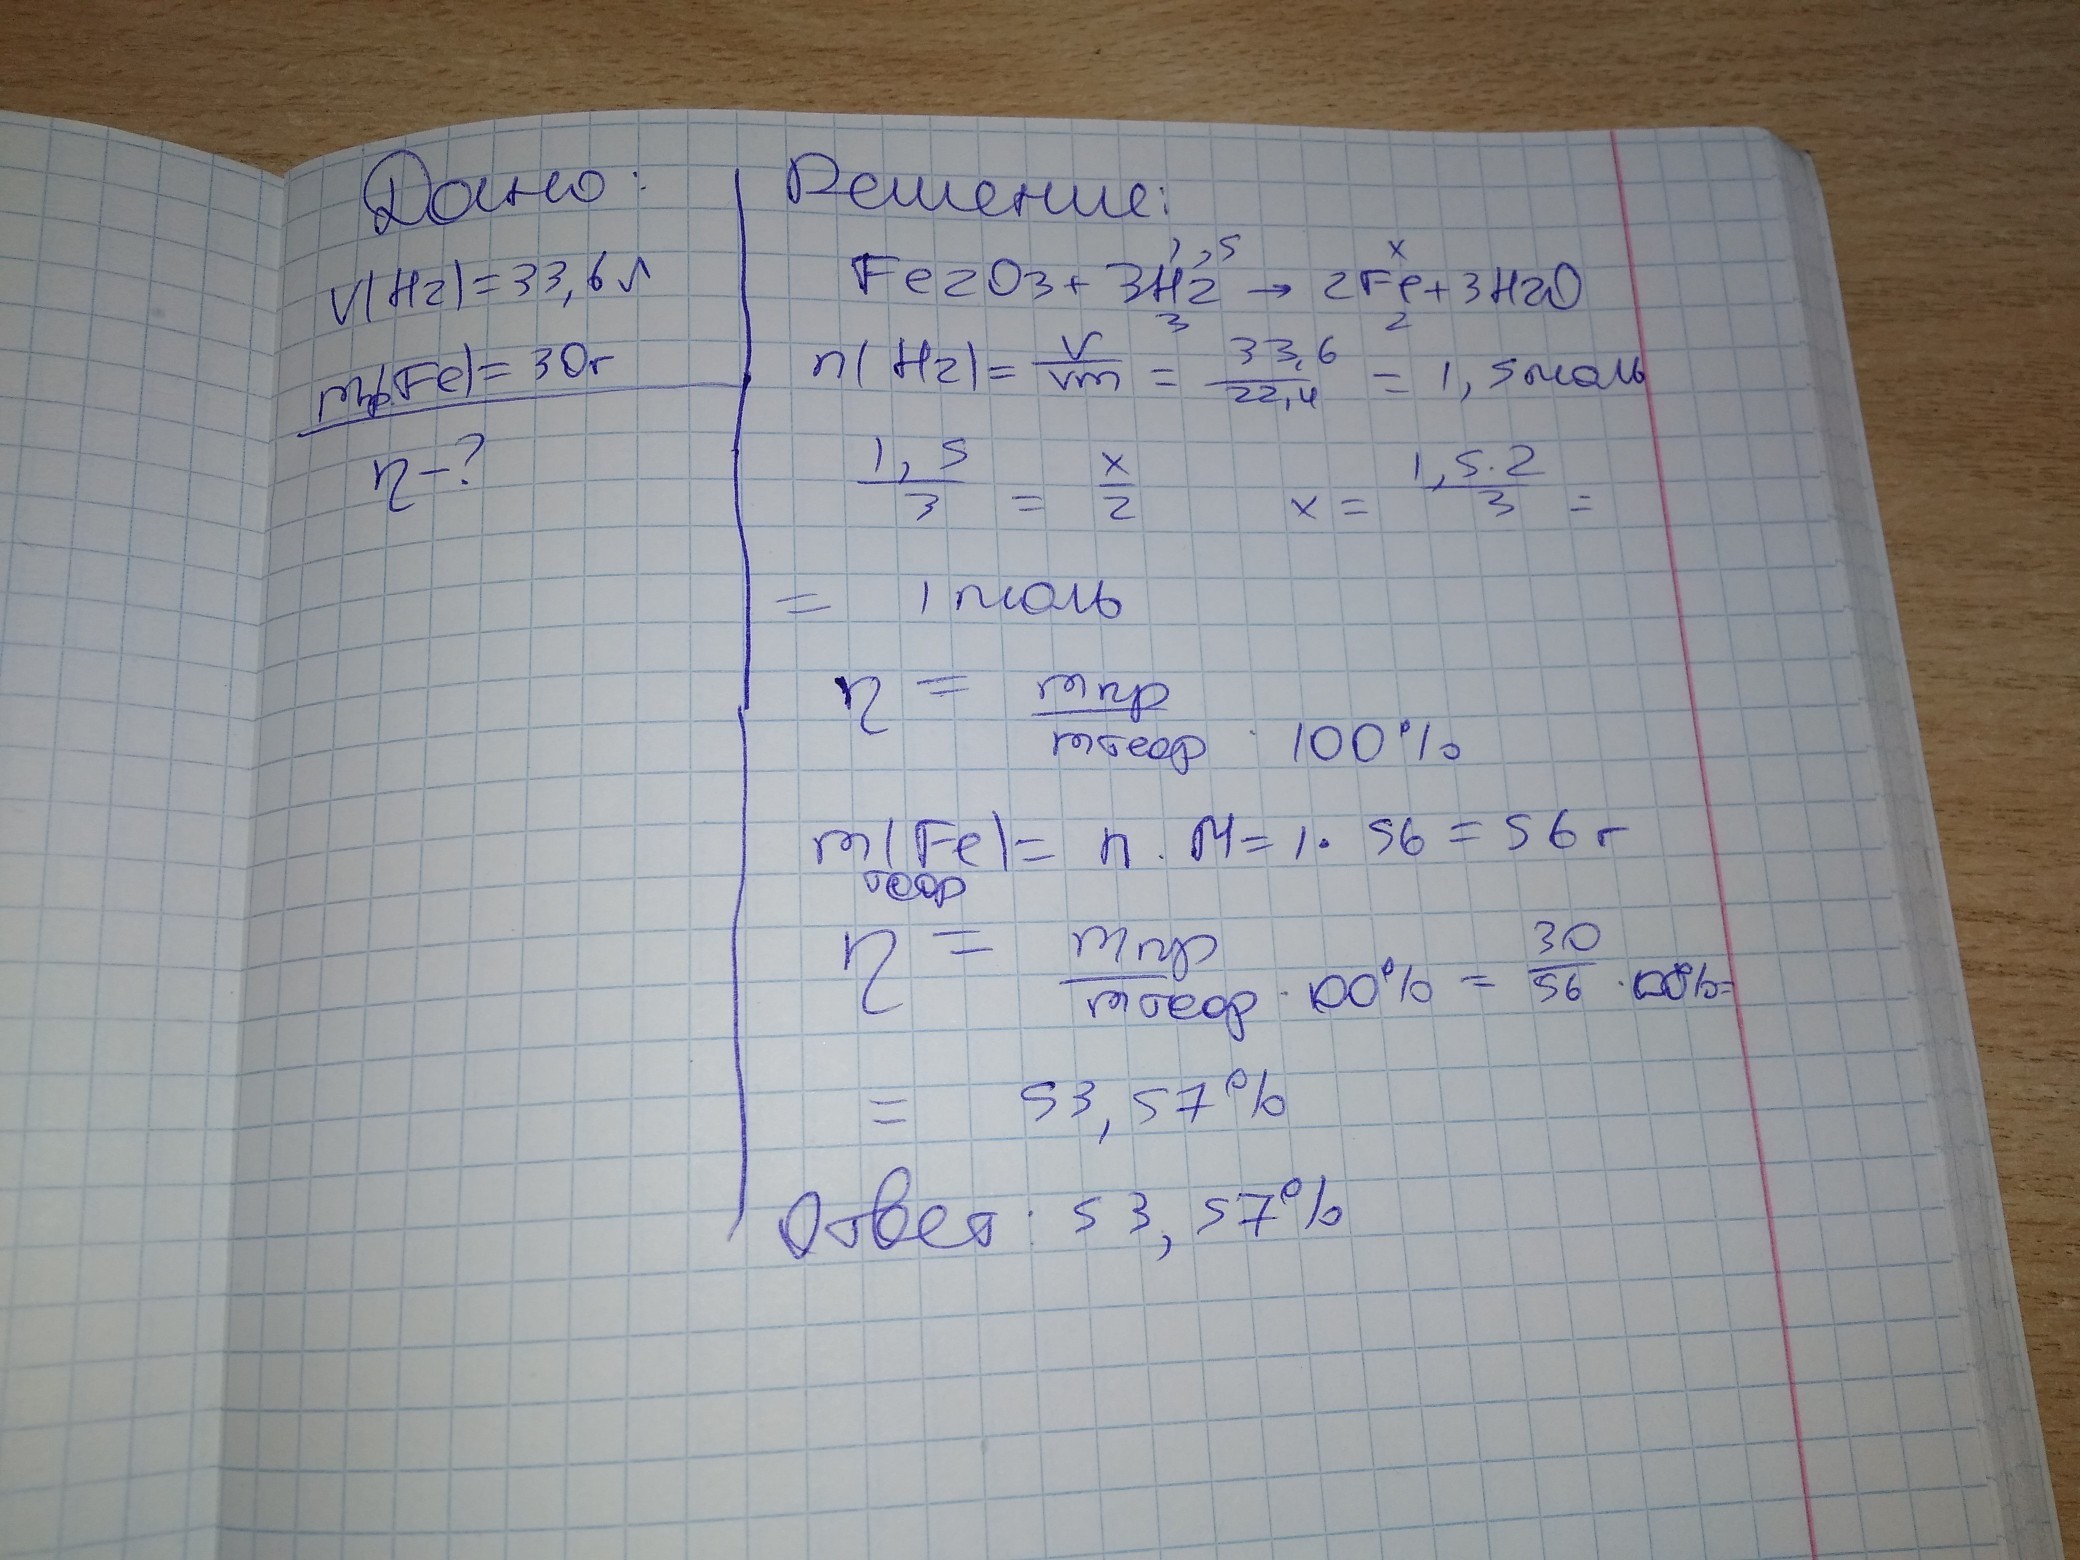 Дано:
V(H2)=33,6 л
mпр(Fe)=30г
η-?
Решение:
1,5 x
Fe2O3+3H2→2Fe+3H2O
3 2
n(H2)=V/Vm=33,6/22,4=1,5моль
1,5/3=x/2 x=1,5·2/3=
= 1моль
η=mпр/mтеор·100%
m(Fe)=n·M=1·56=56г
теор
η=mпр/mтеор·100%=30/56·100%=
= 53,57%
Ответ: 53,57%